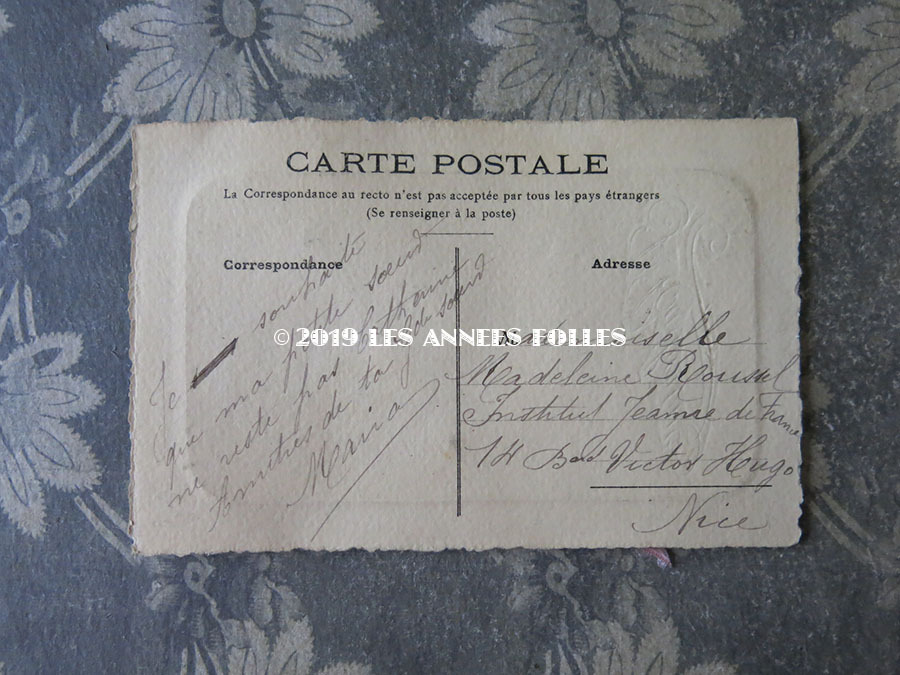 CARTE POSTALE
La Correspondance au recto n'est pas acceptée par tous les pays étrangers
(Se renseigner à la poste)
Correspondance
Je souhaite
que ma petite soeur
ne reste pas Catherine
Amitiés de ta gde soeur
Maria
Adresse
Mademoiselle
Madeleine Roussel
Institut Jeanne de France
14 Bard Victor Hugo
Nice
©2019 LES ANNEES FOLLES